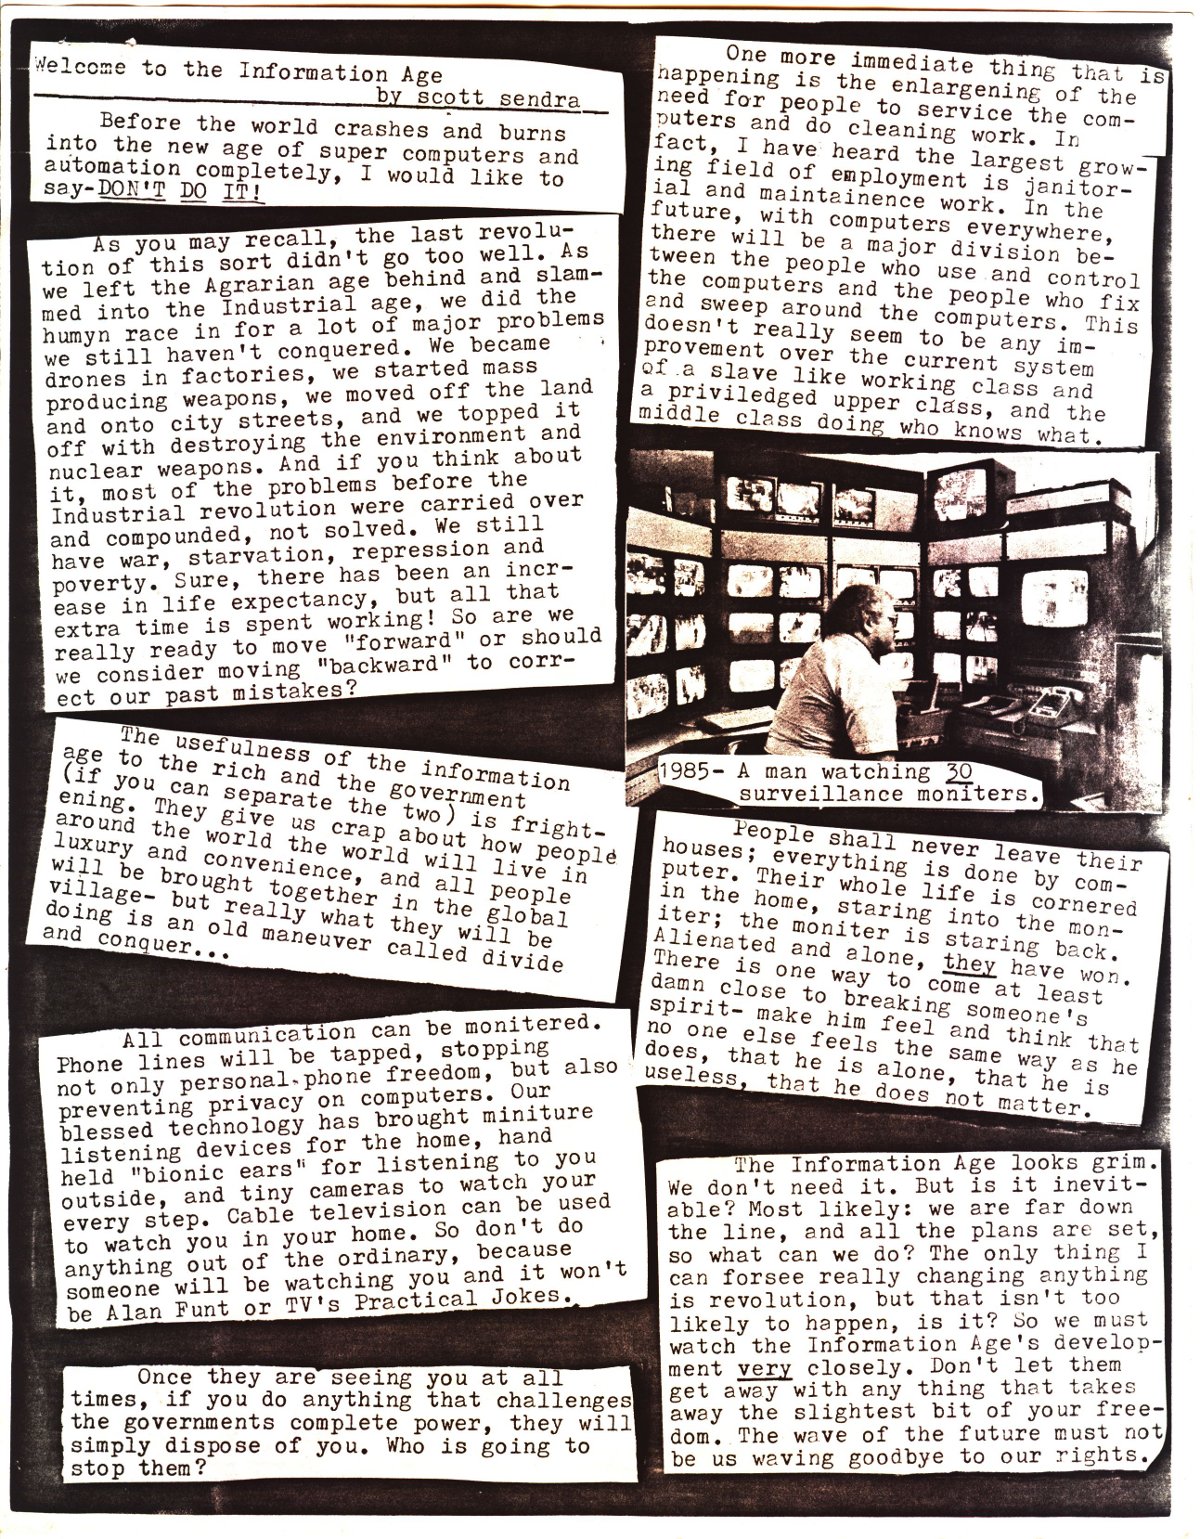 Welcome to the Information Age
by scott sendra
Before the world crashes and burns
into the new age of super computers and
automation completely, I would like to
say-DON'T DO IT!
As you may recall, the last revolu-
tion of this sort didn't go too well. As
we left the Agrarian age behind and slam-
med into the Industrial age, we did the
humyn race in for a lot of major problems
we still haven't conquered. We became
drones in factories, we started mass
producing weapons, we moved off the land
and onto city streets, and we topped it
off with destroying the environment and
nuclear weapons. And if you think about
it, most of the problems before the
Industrial revolution were carried over
and compounded, not solved. We still
have war, starvation, repression and
poverty. Sure, there has been an incr-
ease in life expectancy, but all that
extra time is spent working! So are we
really ready to move "forward" or should
we consider moving "backward" to corr-
ect our past mistakes?
The usefulness of the information
age to the rich and the government
(if you can separate the two) is fright-
ening. They give us crap about how people
around the world the world will live in
luxury and convenience, and all people
will be brought together in the global
village- but really what they will be
doing is an old maneuver called divide
and conquer...
All communication can be monitered.
Phone lines will be tapped, stopping
not only personal phone freedom, but also
preventing privacy on computers. Our
blessed technology has brought miniture
listening devices for the home, hand
held "bionic ears" for listening to you
outside, and tiny cameras to watch your
every step. Cable television can be used
to watch you in your home. So don't do
anything out of the ordinary, because
someone will be watching you and it won't
be Alan Funt or TV's Practical Jokes.
Once they are seeing you at all
times, if you do anything that challenges
the governments complete power, they will
simply dispose of you. Who is going to
stop them?
One more immediate thing that is
happening is the enlargening of the
need for people to service the com-
puters and do cleaning work. In
fact, I have heard the largest grow-
ing field of employment is janitor-
ial and maintainence work. In the
future, with computers everywhere,
there will be a major division be-
tween the people who use and control
the computers and the people who fix
and sweep around the computers. This
doesn't really seem to be any im-
provement over the current system
of a slave like working class and
a priviledged upper class, and the
middle class doing who knows what.
1985- A man watching 30
surveillance moniters.
People shall never leave their
houses; everything is done by com-
puter. Their whole life is cornered
in the home, staring into the mon-
iter; the moniter is staring back.
Alienated and alone, they have won.
There is one way to come at least
damn close to breaking someone's
spirit- make him feel and think that
no one else feels the same way as he
does, that he is alone, that he is
useless, that he does not matter.
The Information Age looks grim.
We don't need it. But is it inevit-
able? Most likely: we are far down
the line, and all the plans are set,
so what can we do? The only thing I
can forsee really changing anything
is revolution, but that isn't too
likely to happen, is it? So we must
watch the Information Age's develop-
ment very closely. Don't let them
get away with any thing that takes
away the slightest bit of your free-
dom. The wave of the future must not
be us waving goodbye to our rights.